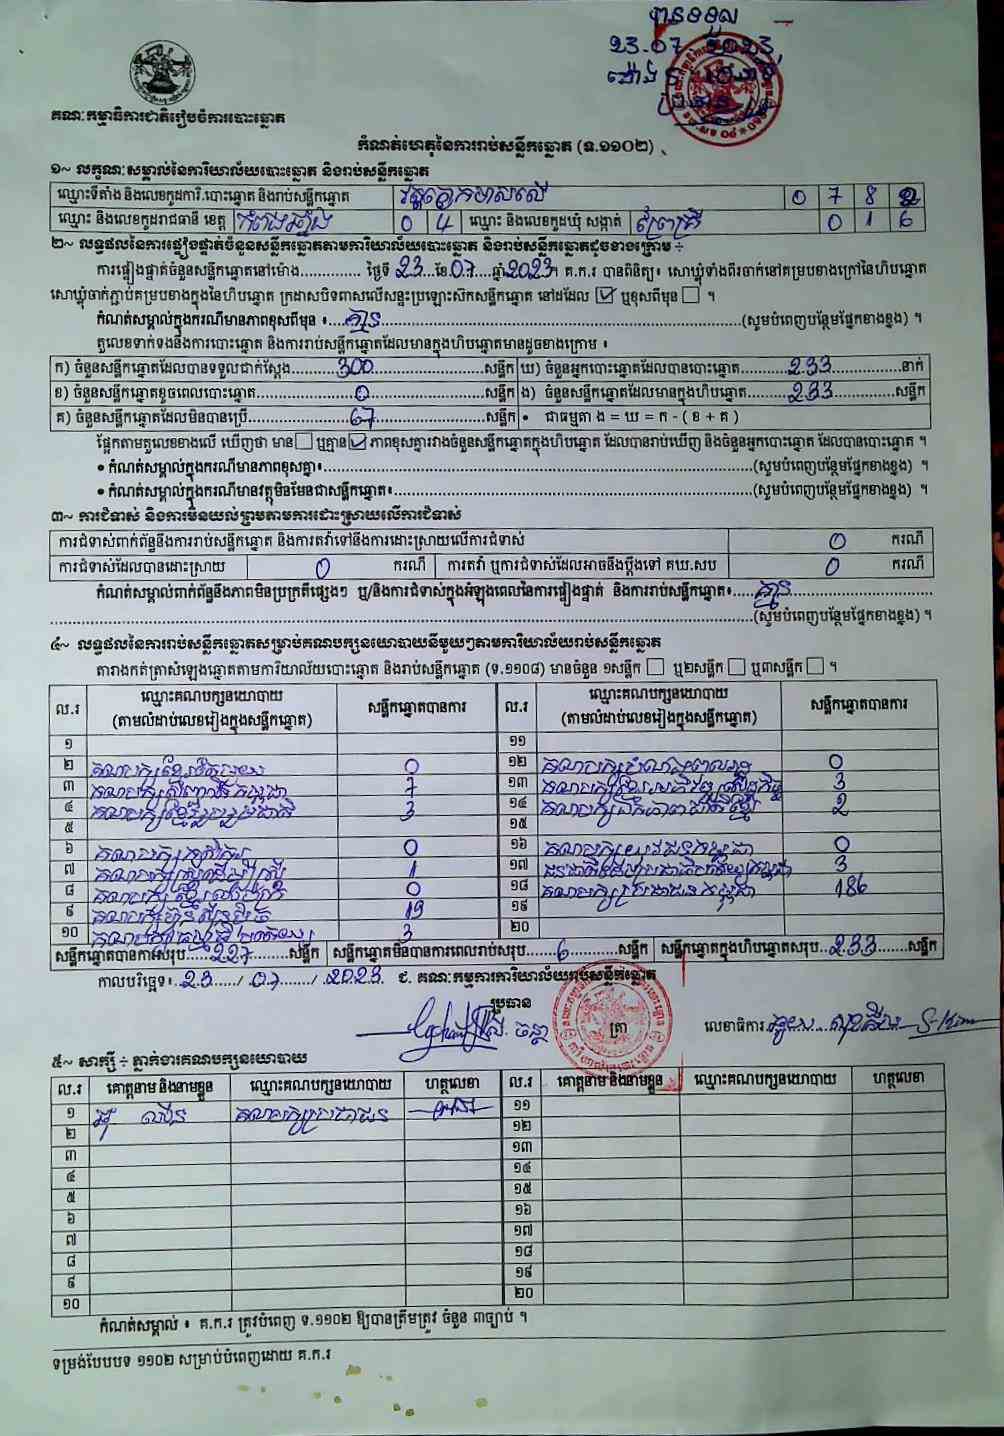 បានទទួល
23.07.2023
គណៈកម្មាធិការជាតិរៀបចំការបោះឆ្នោត
កំណត់ហេតុនៃការរាប់សន្លឹកឆ្នោត (ទ.១១០២)
១~ លក្ខណៈសម្គាល់នៃការិយាល័យបោះឆ្នោត និងរាប់សន្លឹកឆ្នោត
ឈ្មោះទីតាំង និងលេខកូដការិ.បោះឆ្នោត និងរាប់សន្លឹកឆ្នោត 0 7 8 2
ឈ្មោះ និងលេខកូដរាជធានី ខេត្ត កំពង់ឆ្នាំង 0 4 ឈ្មោះ និងលេខកូដឃុំ សង្កាត់ 0 1 6
២~ លទ្ធផលនៃការផ្ទៀងផ្ទាត់ចំនួនសន្លឹកឆ្នោតតាមការិយាល័យបោះឆ្នោត និងរាប់សន្លឹកឆ្នោតដូចខាងក្រោម ÷
ការផ្ទៀងផ្ទាត់ចំនួនសន្លឹកឆ្នោតនៅម៉ោង.............. ថ្ងៃទី 23 ខែ 07 ឆ្នាំ 2023។ គ.ក.រ បានពិនិត្យ៖ សោឃ្លុំទាំងពីរចាក់នៅគម្របខាងក្រៅនៃហិបឆ្នោត
សោឃ្លុំចាក់ភ្ជាប់គម្របខាងក្នុងនៃហិបឆ្នោត ក្រដាសបិទពាសលើសន្ទះប្រឡោះស៊កសន្លឹកឆ្នោត នៅដដែល ☑ ឬខុសពីមុន ☐ ។
កំណត់សម្គាល់ក្នុងករណីមានភាពខុសពីមុន ៖ គ្មាន (សូមបំពេញបន្ថែមផ្នែកខាងខ្នង) ។
តួលេខទាក់ទងនឹងការបោះឆ្នោត និងការរាប់សន្លឹកឆ្នោតដែលមានក្នុងហិបឆ្នោតមានដូចខាងក្រោម ៖
ក) ចំនួនសន្លឹកឆ្នោតដែលបានទទួលជាក់ស្តែង 300 សន្លឹក ឃ) ចំនួនអ្នកបោះឆ្នោតដែលបានបោះឆ្នោត 233 នាក់
ខ) ចំនួនសន្លឹកឆ្នោតខូចពេលបោះឆ្នោត 0 សន្លឹក ង) ចំនួនសន្លឹកឆ្នោតដែលមានក្នុងហិបឆ្នោត 233 សន្លឹក
គ) ចំនួនសន្លឹកឆ្នោតដែលមិនបានប្រើ 67 សន្លឹក • ជាធម្មតា ង = ឃ = ក - ( ខ + គ )
ផ្អែកតាមតួលេខខាងលើ ឃើញថា មាន ☐ ឬគ្មាន ☑ ភាពខុសគ្នារវាងចំនួនសន្លឹកឆ្នោតក្នុងហិបឆ្នោត ដែលបានរាប់ឃើញ និងចំនួនអ្នកបោះឆ្នោត ដែលបានបោះឆ្នោត ។
• កំណត់សម្គាល់ក្នុងករណីមានភាពខុសគ្នា៖ (សូមបំពេញបន្ថែមផ្នែកខាងខ្នង) ។
• កំណត់សម្គាល់ក្នុងករណីមានវត្ថុមិនមែនជាសន្លឹកឆ្នោត៖ (សូមបំពេញបន្ថែមផ្នែកខាងខ្នង) ។
៣~ ការជំទាស់ និងការមិនយល់ព្រមតាមការដោះស្រាយលើការជំទាស់
ការជំទាស់ពាក់ព័ន្ធនឹងការរាប់សន្លឹកឆ្នោត និងការតវ៉ាទៅនឹងការដោះស្រាយលើការជំទាស់ 0 ករណី
ការជំទាស់ដែលបានដោះស្រាយ 0 ករណី ការតវ៉ា ឬការជំទាស់ដែលអាចនឹងប្តឹងទៅ គឃ.សប 0 ករណី
កំណត់សម្គាល់ពាក់ព័ន្ធនឹងភាពមិនប្រក្រតីផ្សេងៗ ឬ/និងការជំទាស់ក្នុងអំឡុងពេលនៃការផ្ទៀងផ្ទាត់ និងការរាប់សន្លឹកឆ្នោត៖ គ្មាន
(សូមបំពេញបន្ថែមផ្នែកខាងខ្នង) ។
៤~ លទ្ធផលនៃការរាប់សន្លឹកឆ្នោតសម្រាប់គណបក្សនយោបាយនីមួយៗតាមការិយាល័យរាប់សន្លឹកឆ្នោត
តារាងកត់ត្រាសំឡេងឆ្នោតតាមការិយាល័យបោះឆ្នោត និងរាប់សន្លឹកឆ្នោត (ទ.១១០៨) មានចំនួន ១សន្លឹក ☐ ឬ២សន្លឹក ☐ ឬ៣សន្លឹក ☐ ។
ល.រ ឈ្មោះគណបក្សនយោបាយ (តាមលំដាប់លេខរៀងក្នុងសន្លឹកឆ្នោត) សន្លឹកឆ្នោតបានការ ល.រ ឈ្មោះគណបក្សនយោបាយ (តាមលំដាប់លេខរៀងក្នុងសន្លឹកឆ្នោត) សន្លឹកឆ្នោតបានការ
១ ១១
២ 0 ១២ 0
៣ 7 ១៣ 3
៤ 3 ១៤ 2
៥ ១៥
៦ 0 ១៦ គណបក្សយុវជនកម្ពុជា 0
៧ 1 ១៧ 3
៨ 0 ១៨ គណបក្សប្រជាជនកម្ពុជា 186
៩ 19 ១៩
១០ 3 ២០
សន្លឹកឆ្នោតបានការសរុប 227 សន្លឹក សន្លឹកឆ្នោតមិនបានការពេលរាប់សរុប 6 សន្លឹក សន្លឹកឆ្នោតក្នុងហិបឆ្នោតសរុប 233 សន្លឹក
កាលបរិច្ឆេទ៖ 23 / 07 / 2023 ជ. គណៈកម្មការការិយាល័យរាប់សន្លឹកឆ្នោត
ប្រធាន
ត្រា លេខាធិការ
៥~ សាក្សី ÷ ភ្នាក់ងារគណបក្សនយោបាយ
ល.រ គោត្តនាម និងនាមខ្លួន ឈ្មោះគណបក្សនយោបាយ ហត្ថលេខា ល.រ គោត្តនាម និងនាមខ្លួន ឈ្មោះគណបក្សនយោបាយ ហត្ថលេខា
១ គណបក្សប្រជាជន ១១
២ ១២
៣ ១៣
៤ ១៤
៥ ១៥
៦ ១៦
៧ ១៧
៨ ១៨
៩ ១៩
១០ ២០
កំណត់សម្គាល់ ៖ គ.ក.រ ត្រូវបំពេញ ទ.១១០២ ឱ្យបានត្រឹមត្រូវ ចំនួន ៣ច្បាប់ ។
ទម្រង់បែបបទ ១១០២ សម្រាប់បំពេញដោយ គ.ក.រ